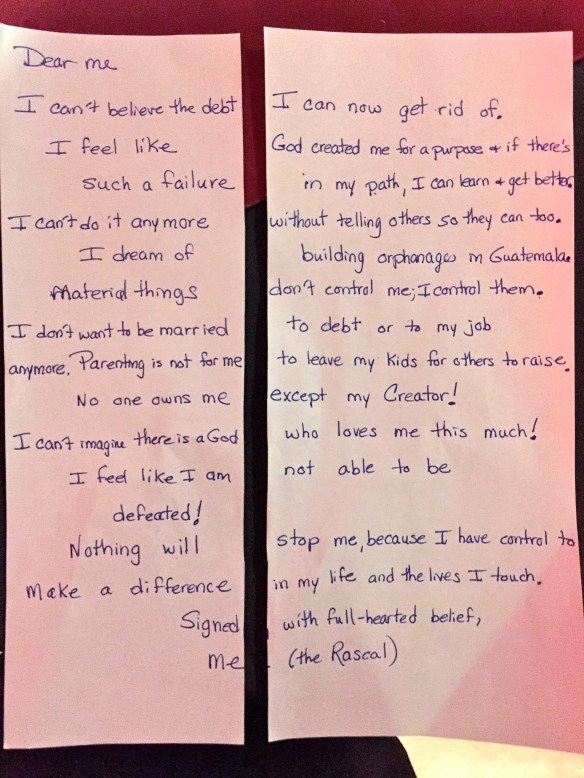 Dear me
I can't believe the debt I can now get rid of.
I feel like God created me for a purpose & if there's
such a failure in my path, I can learn & get better.
I can't do it anymore without telling others so they can too.
I dream of building orphanages in Guatemala.
Material things don't control me; I control them.
I don't want to be married to debt or to my job
anymore. Parenting is not for me to leave my kids for others to raise.
No one owns me except my Creator!
I can't imagine there is a God who loves me this much!
I feel like I am not able to be
defeated!
Nothing will stop me, because I have control to
make a difference in my life and the lives I touch.
Signed with full-hearted belief,
Me (the Rascal)